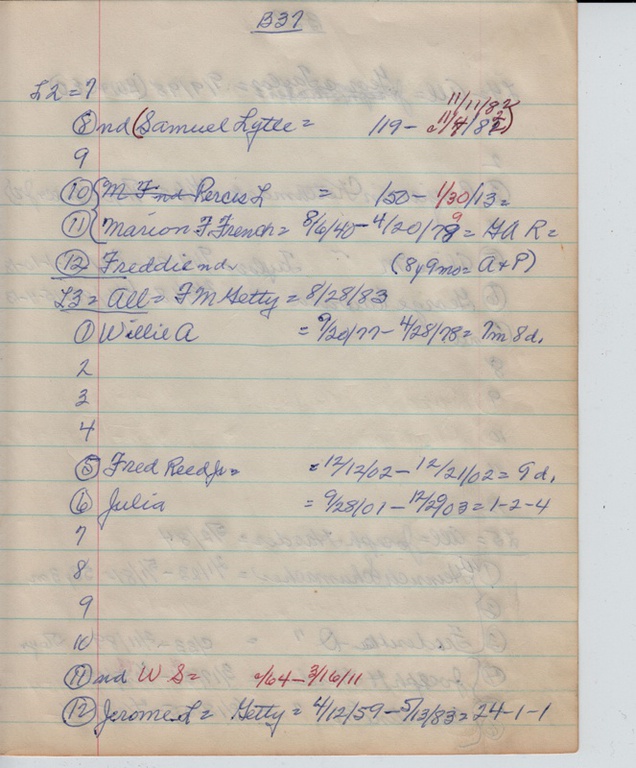 B37
L2 = 7
11/11/82
8 nd (Samuel Lytle = 119 - 11/4/82)
9
10 { M F nd Percis L = 150 - 1/30/13 =
11 { Marion F French = 8/6/40 - 4/20/79 = G A R =
12 Freddie nd. (8y9mo = A + P)
L3 = All = F M Getty = 8/28/83
1 Willie A = 9/20/77 - 4/28/78 = 7m 8d.
2
3
4
5 Fred Reed Jr = = 12/12/02 - 12/21/02 = 9 d.
6 Julia = 9/28/01 - 12/2/03 = 1-2-4
7
8
9
10
11 nd W S = /64 - 3/16/11
12 Jerome L = Getty = 4/12/59 - 5/13/83 = 24-1-1